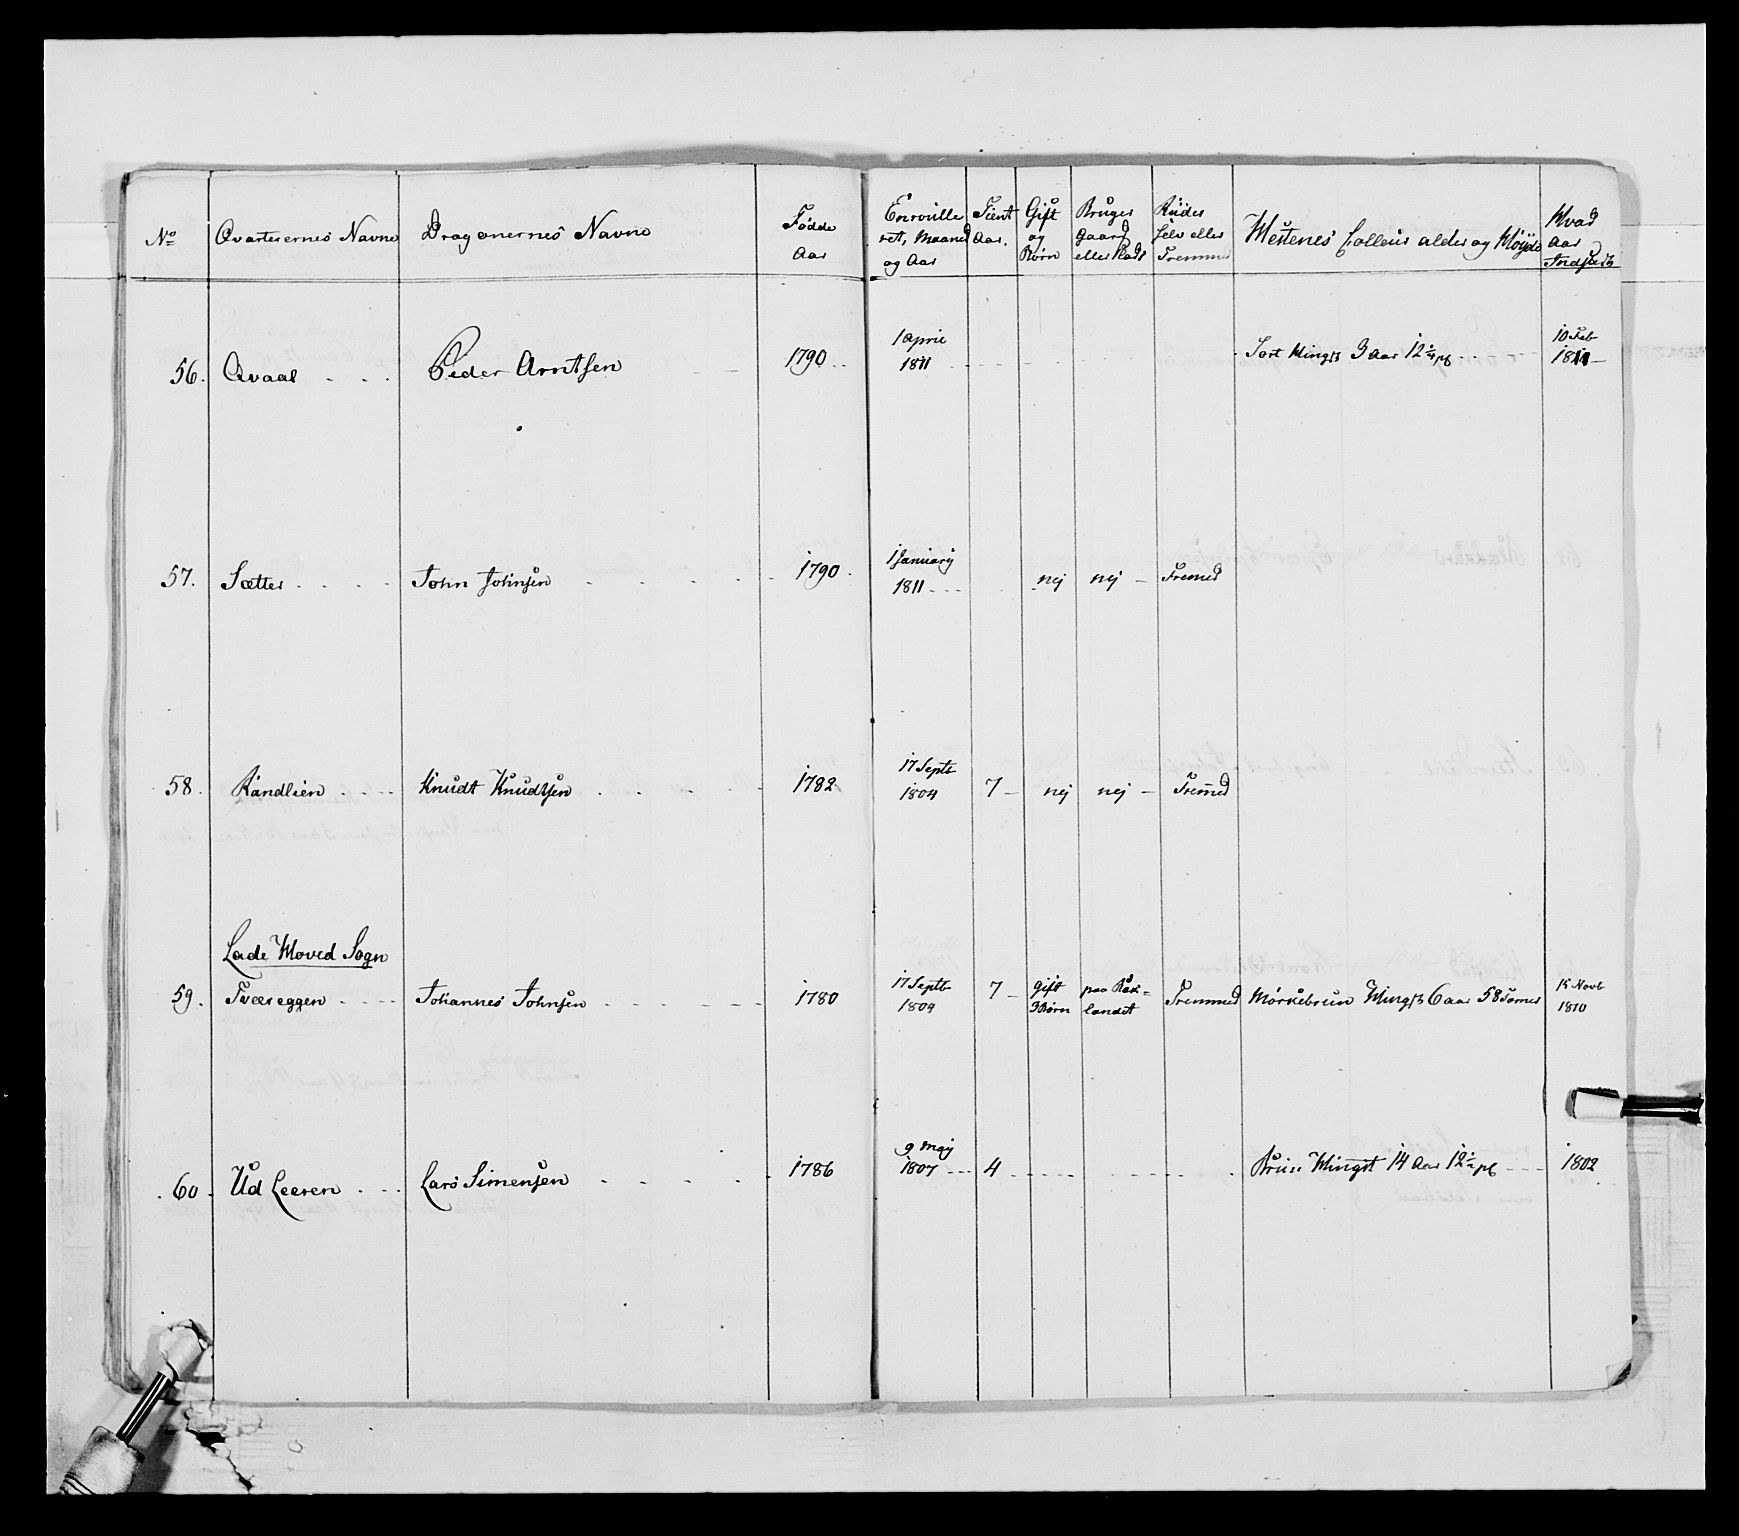 No Qvarterernes Navne Dragonernes Navne Födde Aar Enroulle ret, Maaned og Aar Tient Aar. Gift og Börn Bruger gaard eller Plads Rüder selv eller Fremmed Hestenes Colleur alder og Höyde Hvad Aar Indsadt
56. Qvaal Peder Arntsen 1790 1 April 1811 Sort Hingst 3 Aar 12 1/4 10 Feb 1811
57. Sætter John Johnsen 1790 1 January 1811 nej nej Fremed
58. Randlien Knudt Knudtsen 1782 17 Septb 1804 7 nej nej Fremed
Lade Hoved Sogn
59. Tvereggen Johannes Johnsen 1780 17 Septb 1804 7 gift 3 Börn paa Bax- landet Fremmed Mörkebrun Hingst 6 aar 58 Tomer 15 Novb 1810
60. Ud Leeren Lars Simensen 1786 9 May 1807 4 Brun Hingst 14 Aar 12 1/2 1802